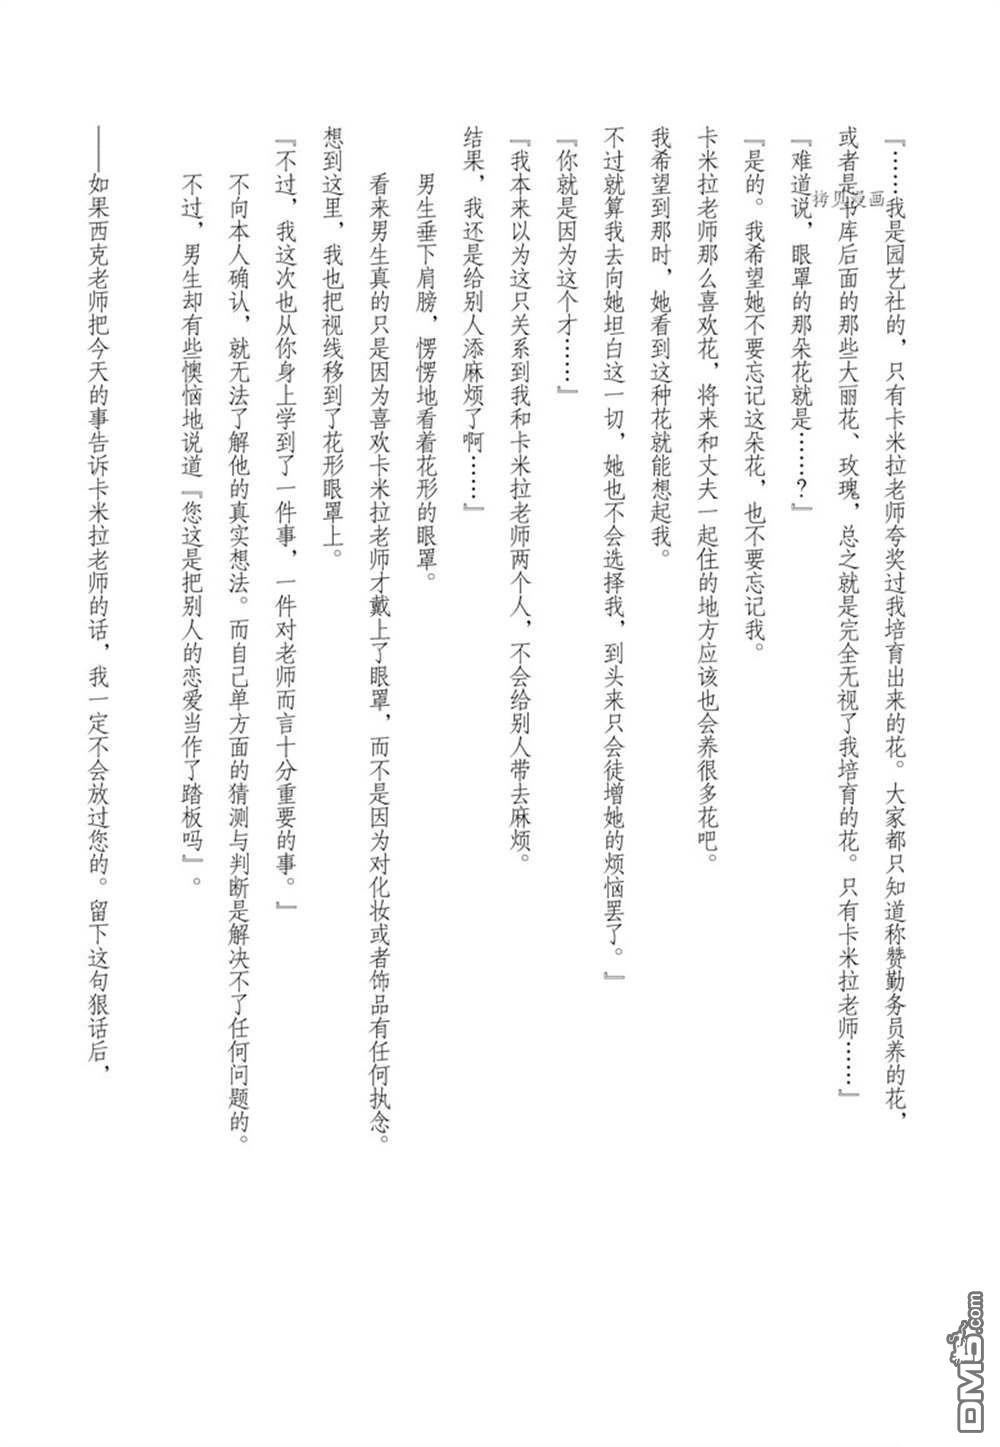 『……我是园艺社的，只有卡米拉老师夸奖过我培育出来的花。大家都只知道称赞勤务员养的花，
或者是书库后面的那些大丽花、玫瑰，总之就是完全无视了我培育的花。只有卡米拉老师……』
『难道说，眼罩的那朵花就是……？』
『是的。我希望她不要忘记这朵花，也不要忘记我。
卡米拉老师那么喜欢花，将来和丈夫一起住的地方应该也会养很多花吧。
我希望到那时，她看到这种花就能想起我。
不过就算我去向她坦白这一切，她也不会选择我，到头来只会徒增她的烦恼罢了。』
『你就是因为这个才……』
『我本来以为这只关系到我和卡米拉老师两个人，不会给别人带去麻烦。
结果，我还是给别人添麻烦了啊……』
男生垂下肩膀，愣愣地看着花形的眼罩。
看来男生真的只是因为喜欢卡米拉老师才戴上了眼罩，而不是因为对化妆或者饰品有任何执念。
想到这里，我也把视线移到了花形眼罩上。
『不过，我这次也从你身上学到了一件事，一件对老师而言十分重要的事。』
不向本人确认，就无法了解他的真实想法。而自己单方面的猜测与判断是解决不了任何问题的。
不过，男生却有些懊恼地说道『您这是把别人的恋爱当作了踏板吗』。
——如果西克老师把今天的事告诉卡米拉老师的话，我一定不会放过您的。留下这句狠话后，
拷贝漫画
DM5.com